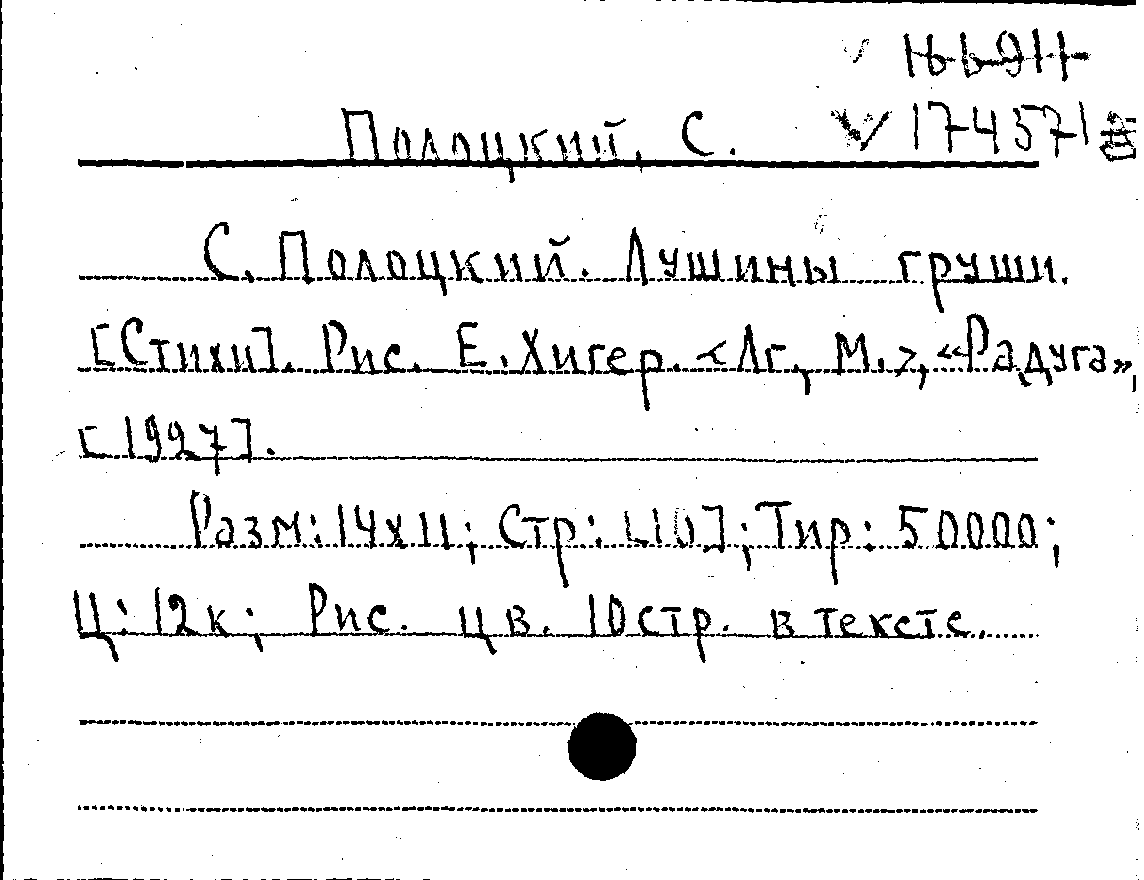 166911
Полоцкий, С. V 174571
С. Полоцкий. Лушины груши.
[Стихи]. Рис. Е. Хигер. <Лг, М.>, «Радуга»,
[1927].
Разм: 14х11; Стр: [10]; Тир: 50000;
Ц: 12к; Рис. цв. 10 стр. в тексте.